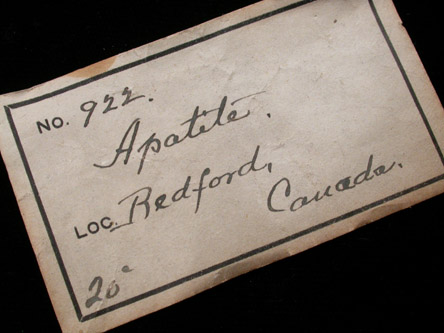 NO. 922.
Apatite.
LOC. Bedford,
Canada.
20¢